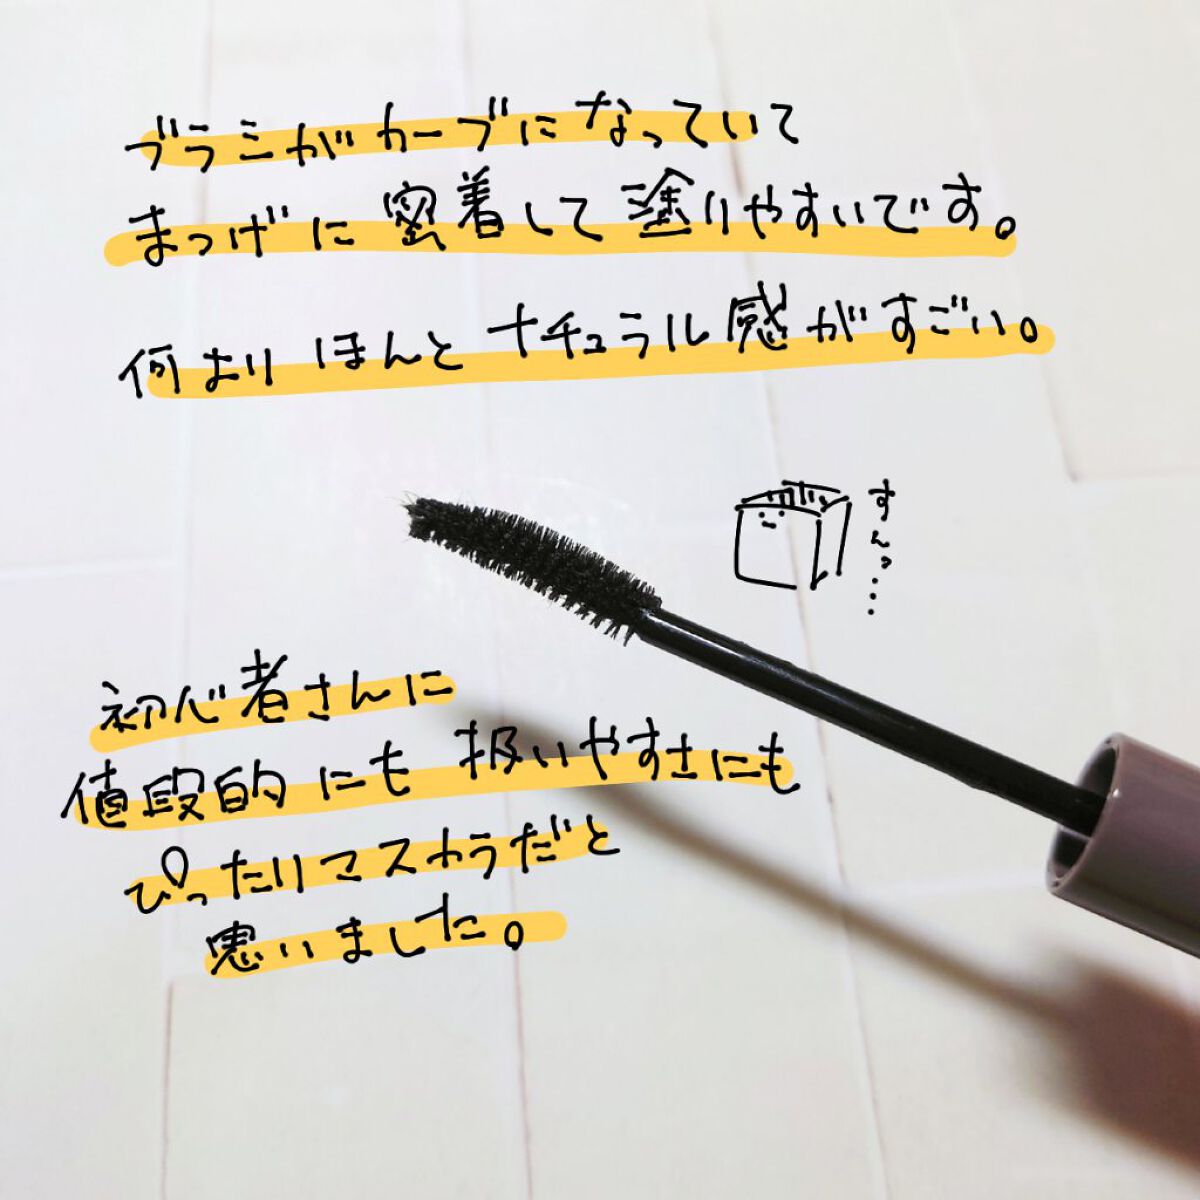 ブラシがカーブになっていて
まつげに密着して塗りやすいです。
何よりほんとナチュラル感がすごい。
すんっ...
初心者さんに
値段的にも扱いやすさにも
ぴったりマスカラだと
思いました。